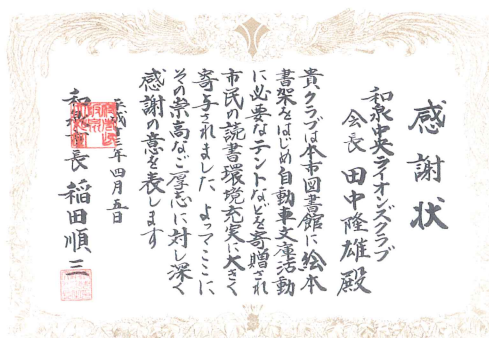 感謝状
和泉中央ライオンズクラブ
会長 田中隆雄殿
貴クラブは本市図書館に絵本
書架をはじめ自動車文庫活動
に必要なテントなどを寄贈され
市民の読書環境充実に大きく
寄与されました よってここに
その崇高なご厚志に対し深く
感謝の意を表します
平成十三年四月五日
和泉市長 稲田順三